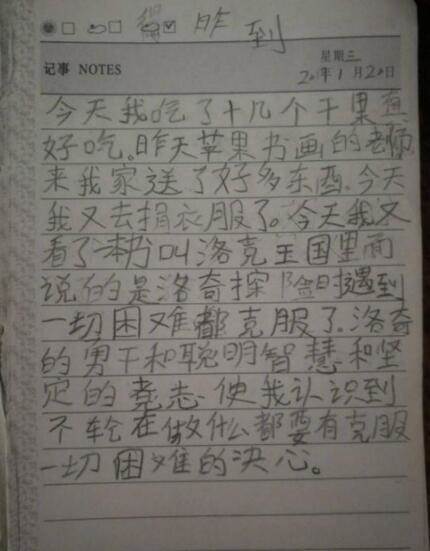 得 昨 到
星期三
记事 NOTES
2011年1月20日
今天我吃了十几个干果真
好吃。昨天苹果书画的老师
来我家送了好多东西.今天
我又去捐衣服了。今天我又
看了一本书叫洛克王国里面
说的是洛奇探险时遇到
一切困难都克服了.洛奇
的勇干和聪明智慧和坚
定的意志.使我认识到
不轮在做什么都要有克服
一切困难的决心。